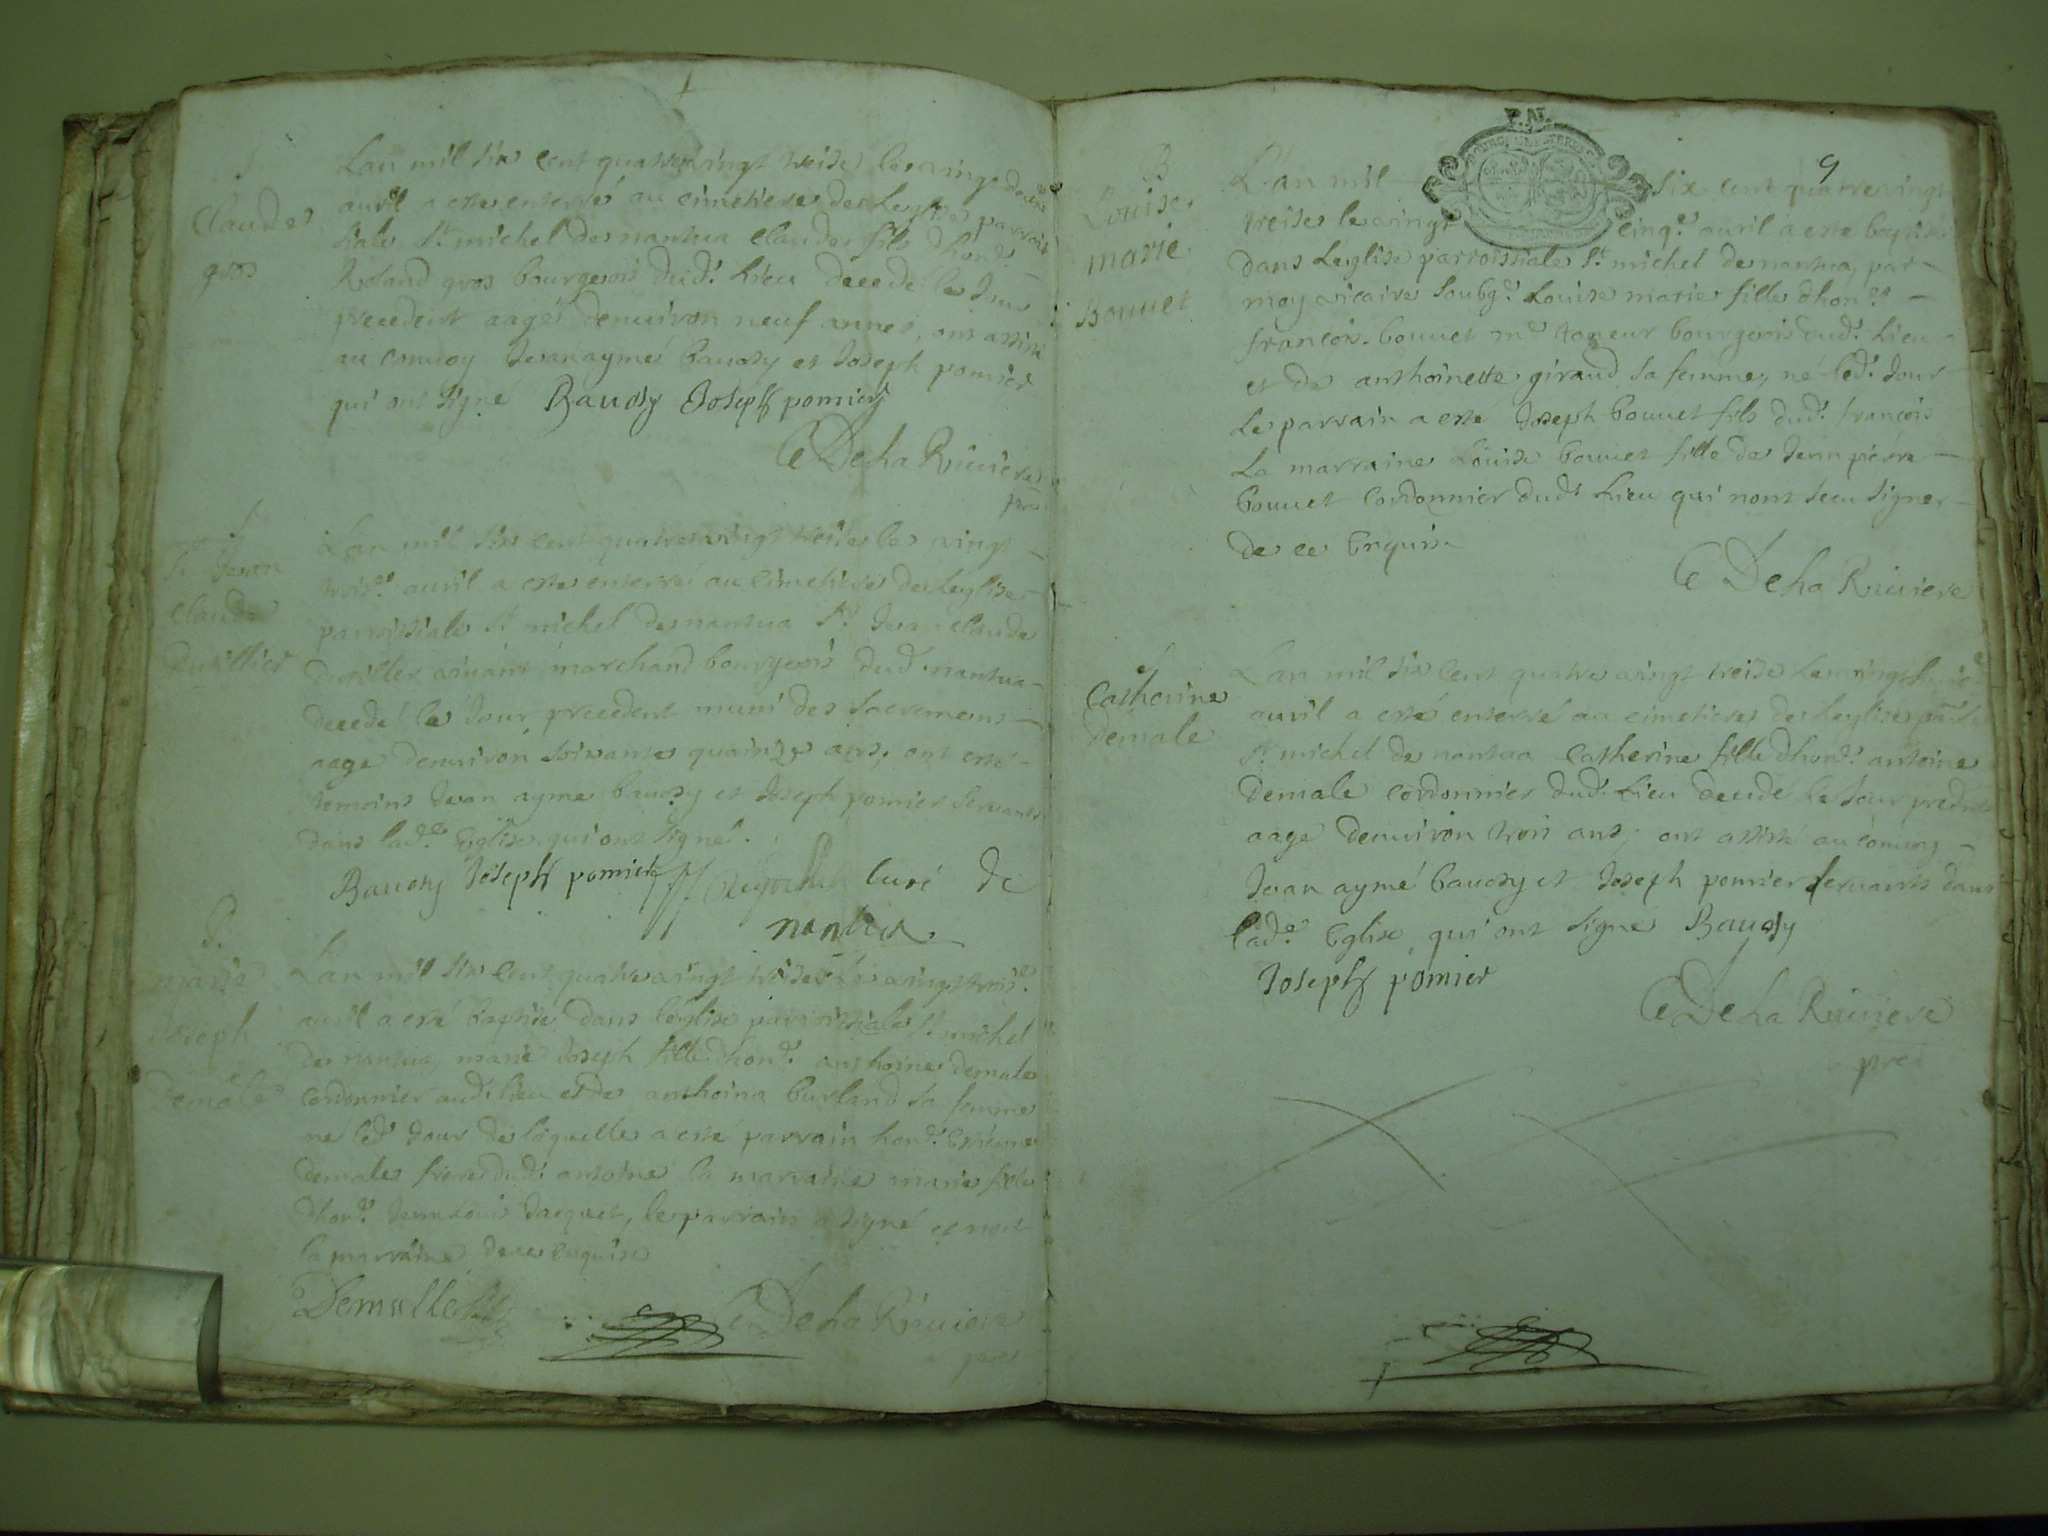 Lan mil six cent quatrevingt treise le vingt deux
avril a este enterré au cimetiere de Leglise parrois
siale St michel de nantua Claude fils dhon.
Claude
gros
Roland gros bourgeois dud. Lieu decedé le Jour
precedent aagé denuiron neuf annes, ont assisté
au conuoy Jean aymé baudsy et Joseph pomier
qui ont signé Baudsy Joseph pomier
C De La Riuiere
pre
Lan mil six cent quatrevingt treise le vingt
trois.e avril a este enterré au cimetiere de Leglise
parroissiale St michel de nantua Sr Jean claude
Sr Jean
Claude
Duvillier
Duviller vivant marchand bourgeois dud. nantua
decedé le Jour precedent muni des sacremens
aage denuiron soixante quainze ans, ont esté
temoins Jean ayme baudsy et Joseph pomier seruants
dans lad.e Eglise qui ont signé.
Baudsy Joseph pomier curé de
nantua
Lan mil six cent quatre vingt treise Le vingt trois.e
avril a esté baptisé dans leglise parroissiale St michel
de nantua, marie Joseph fille dhon. anthoine demale
marie
Joseph
Demale
cordonnier aud. lieu et de anthoina burland sa femme
né led. Jour de laquelle a esté parrain hon. Estienne
demale frere dud. antoine la marraine marie fille
dhon. Jean Louis Jacquet, le parrain a signé et non
la marraine de ce enquise
Demalle C De La Riuiere
pre
9
B
Louise
marie
Bouuet
L'an mil six cent quatrevingt
treise le vingt cinq.e avril a este baptisé
dans Leglise parroissiale St michel de nantua, par
moy vicaire soubg.é Louise marie fille dhon.
francois bouuet m.e taneur bourgeois dud. Lieu
et de anthoinette giraud sa femme, né led. Jour
Le parrain a este Joseph bouuet fils dud. francois
La marraine Louise bouuet fille de Jean pierre
bouuet cordonnier dud. Lieu qui nont sceu signer
de ce Enquis
C De La Riuiere
Catherine
Demale
Lan mil six cent quatre vingt treise Le vingt
avril a esté enterré au cimetiere de Leglise
St michel de nantua Catherine fille dhon. antoine
Demale cordonnier dud. Lieu decedé Le Jour
aage denuiron trois ans, ont assisté au conuoy
Jean aymé baudsy et Joseph pomier seruants dans
lad.e Eglise, qui ont signé Baudsy
Joseph pomier
C De La Riuiere
pre